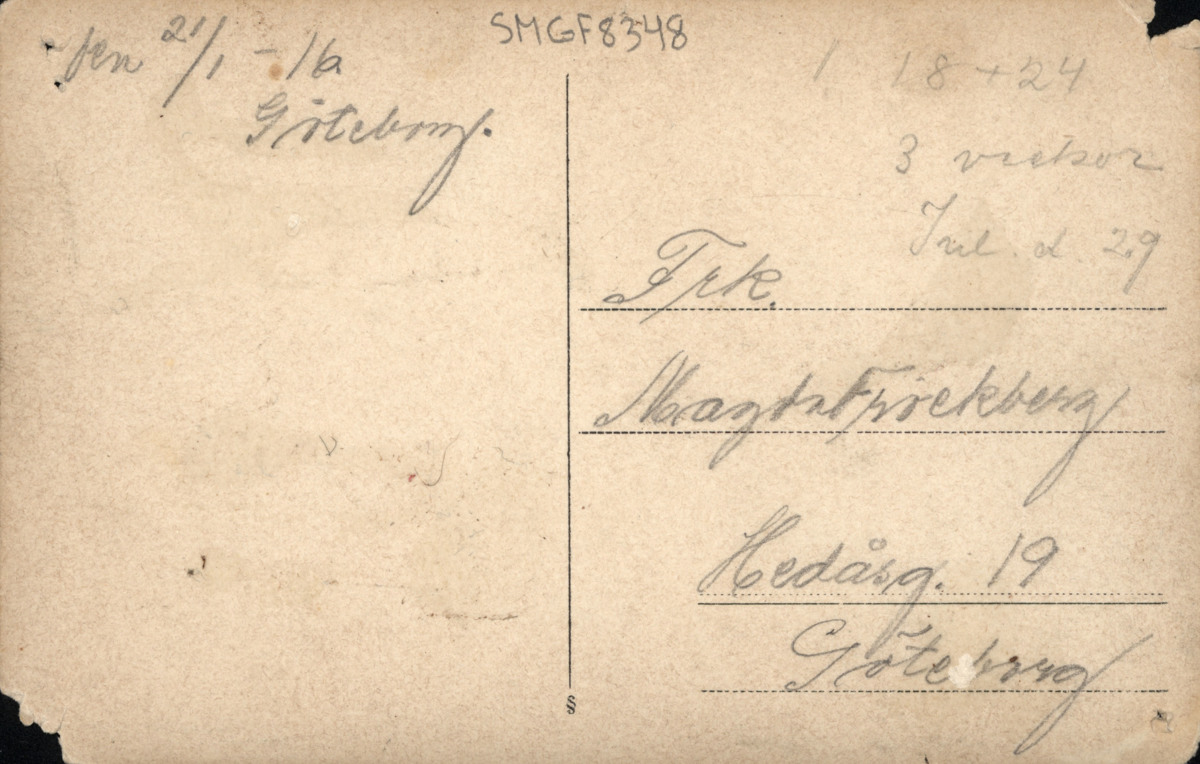 den 21/1 - 16
Göteborg.
SMGF8348
1 18 + 24
3 veckor
d 29
Frk.
Magda
Hedåsg. 19
Göteborg
§